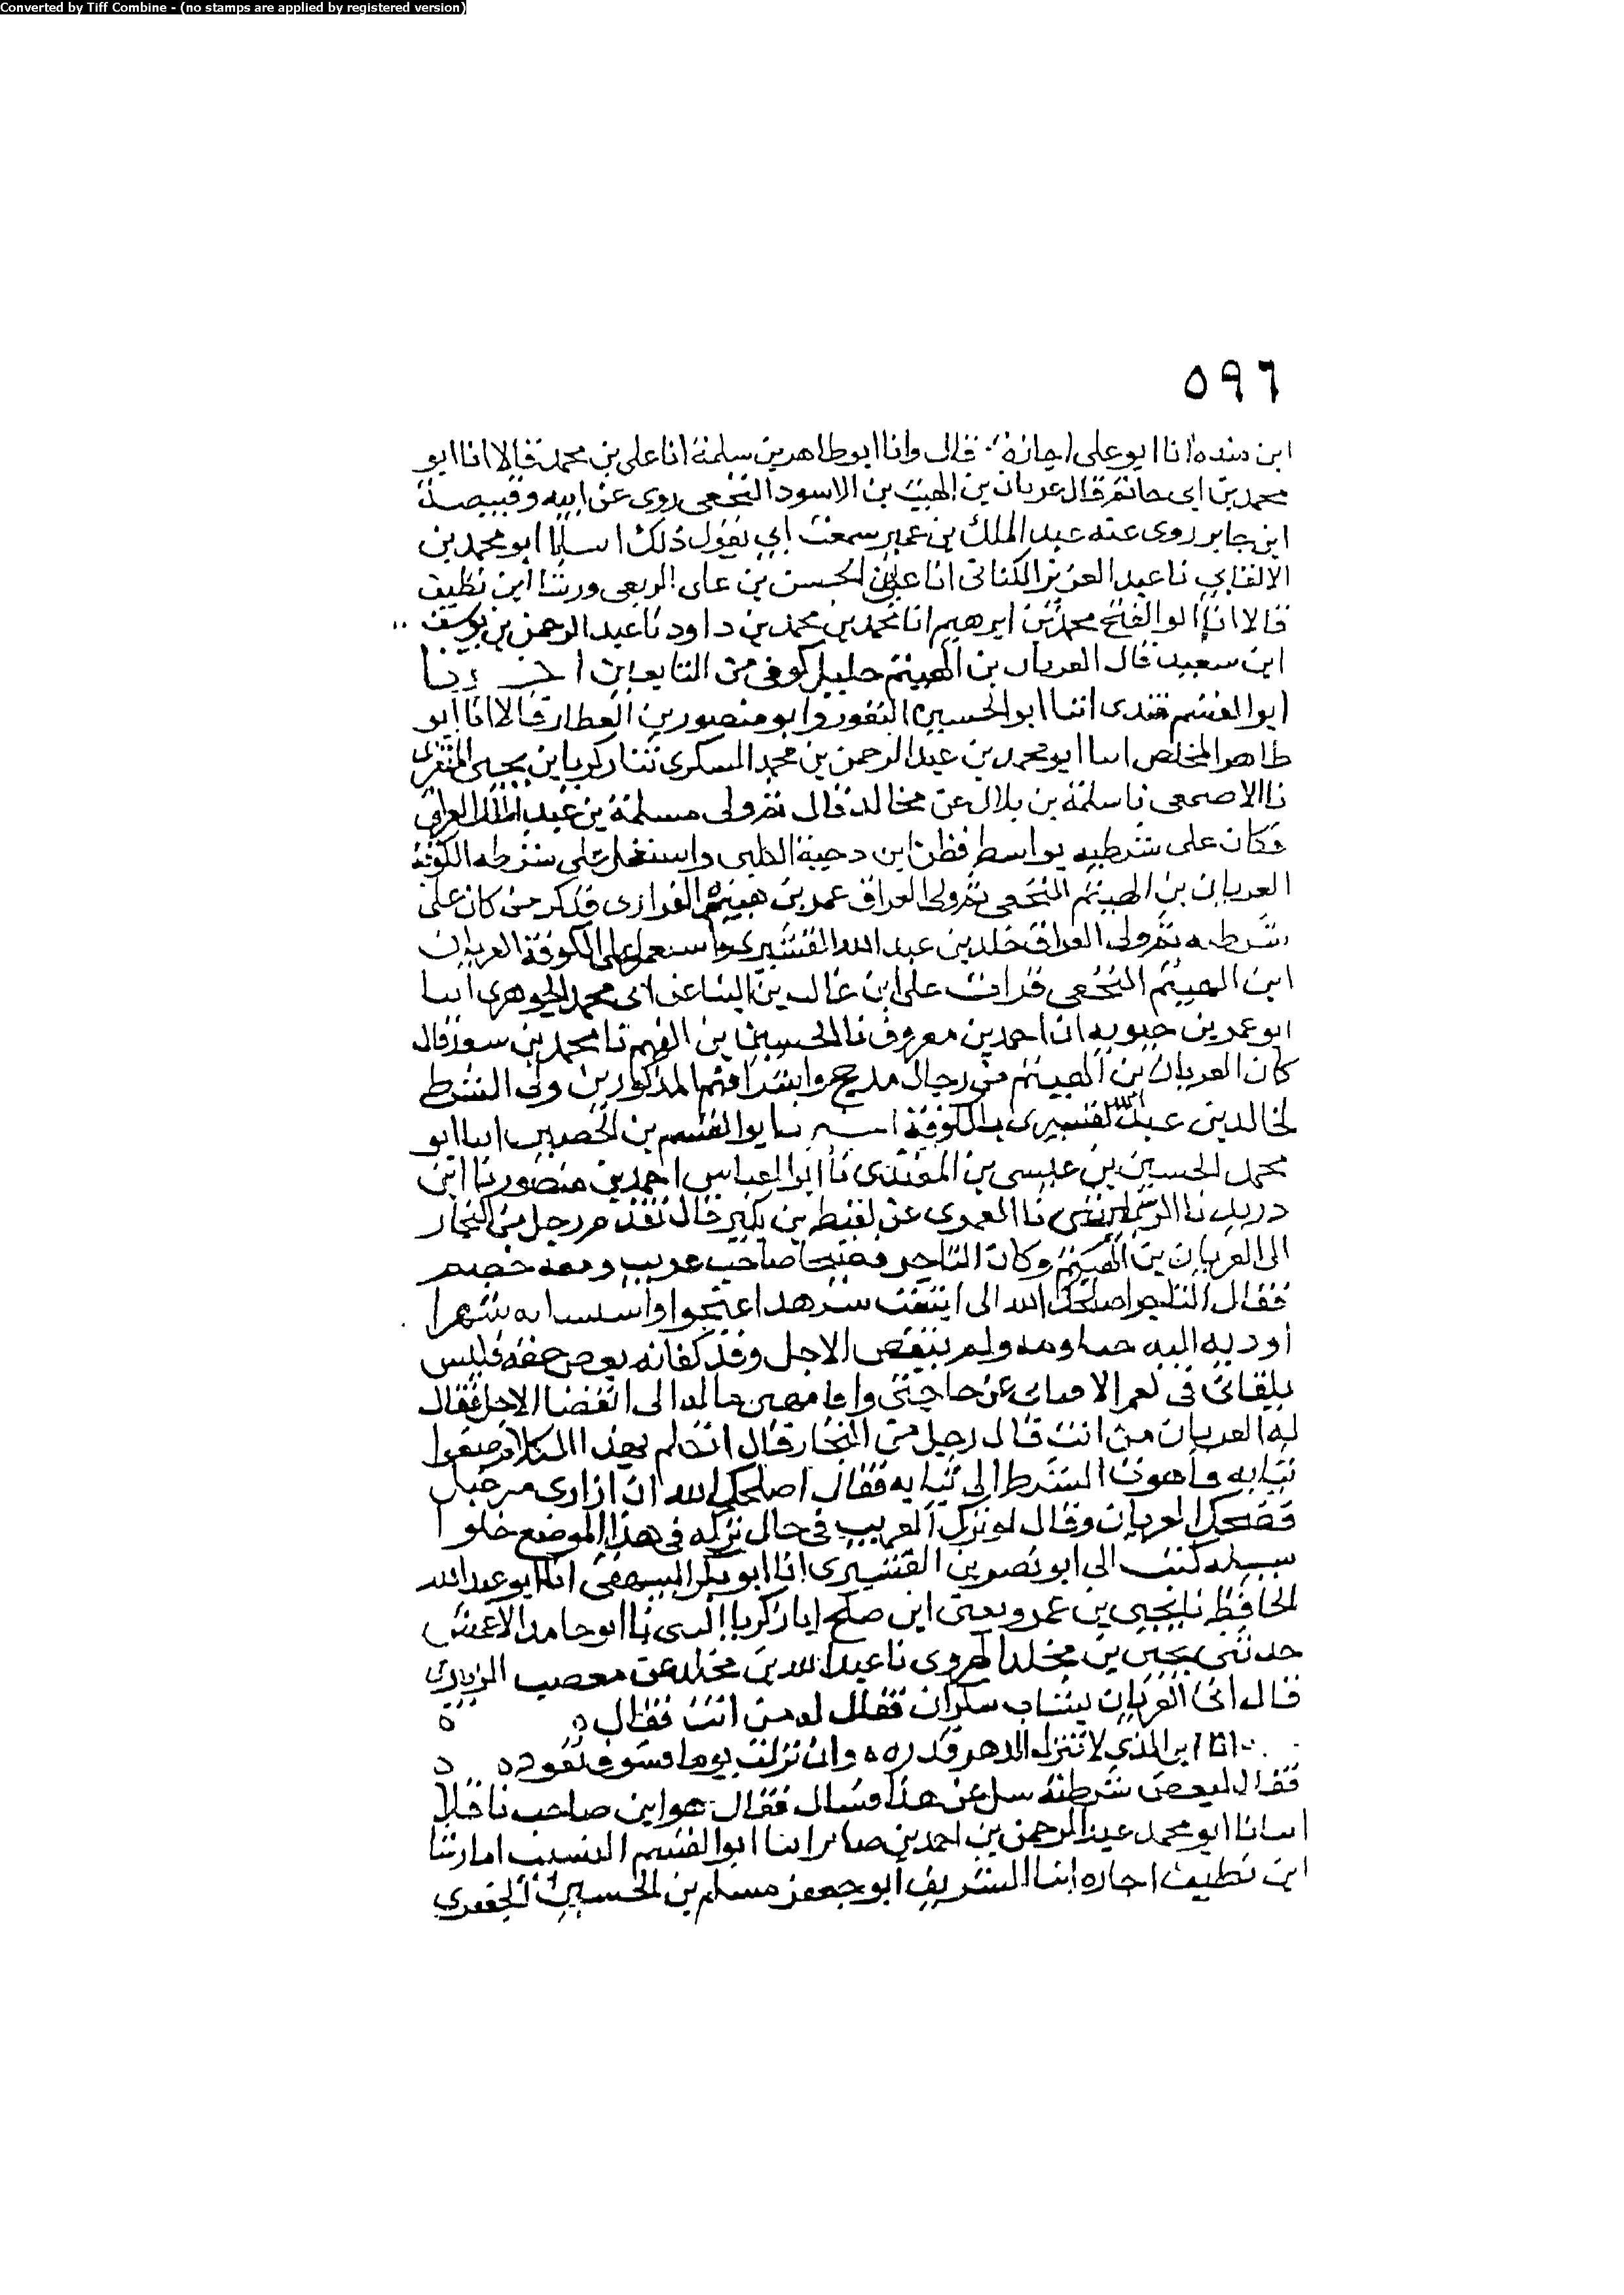 Converted by Tiff Combine - (no stamps are applied by registered version)
٥٩٦
ابن منده انا ابو علي اجازة قال وانا ابو طاهر بن سلمة انا علي بن محمد قالا انا ابو
محمد بن ابي حاتم قال عريان بن الهيثم بن الاسود النخعي روى عن ابيه وقبيصة
ابن جابر روى عنه عبد الملك بن عمير سمعت ابي يقول ذلك ابو محمد بن
الاكفاني نا عبد العزيز الكتاني انا علي بن الحسن بن علي الربعي ورشا ابن نظيف
قالا انا ابو الفتح محمد بن ابرهيم انا محمد بن محمد بن داود نا عبد الرحمن بن يوسف
ابن سعيد قال العريان بن الهيثم جليل كوفي من التابعين اخبرنا
ابو القسم انا ابو الحسين النقور وابو منصور بن العطار قالا انا ابو
طاهر المخلص انا ابو محمد بن عبد الرحمن بن محمد السكري ثنا زكريا بن يحيى المنقري
نا الاصمعي نا سلمة بن بلال عن مخالد قال ثم ولى مسلمة بن عبد الملك العراق
وكان على شرطه بواسط قطن ابن دحية الكلبي واستعمل على شرطه الكوفة
العريان بن الهيثم النخعي ثم ولي العراق عمر بن هبيرة الفزاري فذكر من كان على
شرطه ثم ولي العراق خلد بن عبد الله القشيري واستعمل على الكوفة العريان
ابن الهيثم النخعي قرات على ابن غالب بن البنا عن ابي محمد الجوهري انبا
ابو عمر بن حيويه انا احمد بن معروف نا الحسين بن الفهم نا محمد بن سعد قال
كان العريان بن الهيثم من رجال مذحج واشرافهم المذكورين وولي الشرط
لخالد بن عبد الله القسيري بالكوفة ابو القسم بن الحصين انا ابو
محمد الحسين بن عيسى بن المقتدى نا ابو العباس احمد بن منصور نا ابن
دريد نا نا العمري عن لقيط بن بكير قال تقدم رجل من التجار
الى العريان بن الهيثم وكان التاجر فصيحا صاحب غريب ومعه خصم
فقال التاجر اصلحك الله اني ابتعت من هذا شهرا
اوديه اليه ولم ينقص الاجل وقد بعض حقه فليس
يلقاني في لقم الا عن حاجتي وانا الى انقضا الاجل فقال
له العريان من انت قال رجل من التجار قال اتتكلم بهذا الكلام ضعوا
ثيابه فاهوت الشرط الى ثيابه فقال اصلحك الله ان ازاري مرعبل
فضحك العريان وقال لو ترك الغريب في حال تركه في هذا الموضع خلوا
سبيله كتب الى ابو نصر بن القشيري انا ابو بكر البيهقي انا ابو عبد الله
الحافظ نا يحيى بن عمرو يعني ابن صلح زكريا نا ابو حامد الاعمش
حدثني يحيى بن مخلد الهروي نا عبد الله بن مخلد عن معصب الزبيري
قال اتى العريان بشاب سكران فقال له من انت فقال
انا ابن الذي لا تنزل الدهر قدره وان نزلت يوما فسوف تعود
فقال لبعض شرطته سل عن هذا فسال فقال هو ابن صاحب ناقلا
انبانا ابو محمد عبد الرحمن بن احمد بن صابر انبا ابو القسم النسيب انا رشا
ابن نظيف اجازه انبا الشريف ابو جعفر مسلم بن الحسين الجعفري